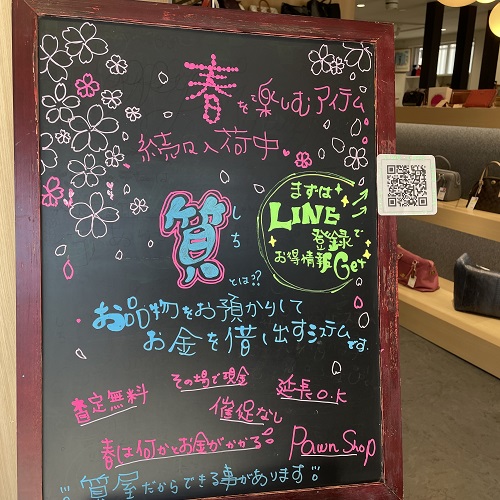 春を楽しむアイテム
続々入荷中
質
しち
とは??
まずは
LINE
登録で
お得情報Get
お品物をお預かりして
お金を借り出すシステムです。
査定無料
その場で現金
延長O.K
催促なし
春は何かとお金がかかる
Pawn Shop
質屋だからできる事があります